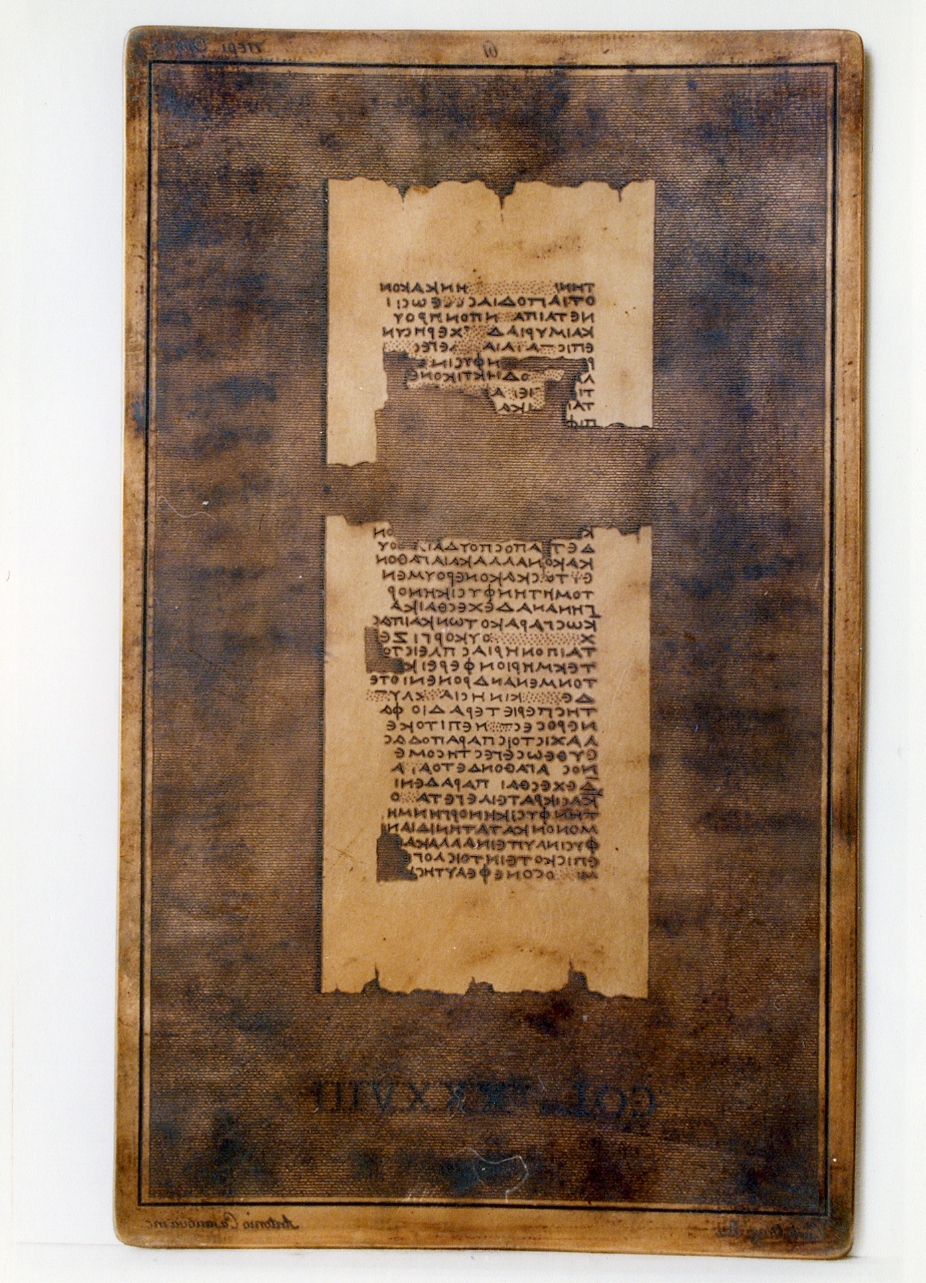 περι Οργης
ΤΗΝΙ ΗΝΚΑΚΟΝ
ΟΤΙΑΠΟΔΙΑϹ ΕΩϹΙ
ΝΕΤΑΙΠΑ ΝΠΟΝΗΡΟΥ
ΚΑΙΜΥΡΙΑΔ ΧΕΡΗϹΥΝ
ΕΠΙϹΠΑΤΑΙΑ ΛΕΓΕ
Ρ ΗΦΥϹΙΝΕ
ΛΑ ΟΔΗΚΤΙΚΟΝΕ
ΤΙ ΙΕΙ Α
ΤΑΙ ΙΚΑ
ΠΙΦ
Κ ΟΝ
ΔΕΤ ΑΠΟϹΠΟΥΔΑΙ ΟΥ
ΚΑΚΟΝΑΛΛΑΚΑΙΑΓΑΘΟΝ
ΕΥΤΟϹΚΑΚΟΝΕΡΟΥΜΕΝ
ΤΟΜΗΤΗΝΦΥϹΙΚΗΝΟΡ
ΓΗΝΑΝΑΔΕΧΕϹΘΑΙΚΑ
ΚΩϹΓΑΡΑΚΟΤΩΝΚΑΙΠΑϹ
Χ ΟΥΚΟΡΓΙΖΕ
ΤΑΙΠΟΝΗΡΙΑϹΠΛΕΙϹΤΟ
ΤΕΚΜΗΡΙΟΝΦΕΡΕΙΚ
ΤΟΝΜΕΝΑΝΔΡΟΝΕΝΙΟΤΕ
ΔΕ ΚΙΝΗϹΙΑ ΚΛΥΠ
ΤΗϹΠΕΡΙΕΤΕΡΑΔΙΟ ΦΑ
ΝΕΡΟϹΕϹΤ ΝΕΠΙΤΟΚΕ
ΛΑΧΙϹΤΟΙϹΠΑΡΑΠΟΔΑϹ
ΕΥΘΕΩϹΕΓΕϹΤΗϹΟΜΕ
ΝΟϹ ΑΓΑΘΟΝΔΕΤΟΑΙ Α
ΔΕΧΕϹΘΑΙ ΠΑΡΑΔΕΝΙ
ΚΑϹΙΚΡΑΤΕΙΛΕΓΕΤΑ Ο
ΤΗΝΦΥϹΙΚΗΝΟΡΓΗΝΜΗ
ΜΟΝΟΝΚΑΤΑΤΗΝΙΔΙΑΝ
ΦΥϹΙΝΛΥΠΕΙΝΑΛΛΑΚΑ
ΕΠΙϹΚΟΤΕΙΝΤΟΙϹΛΟΓ
Μ ΟϹΟΝΕΦΕΑΥΤΗϹ
COL. XXXVIII
Antonio Casanova inc.